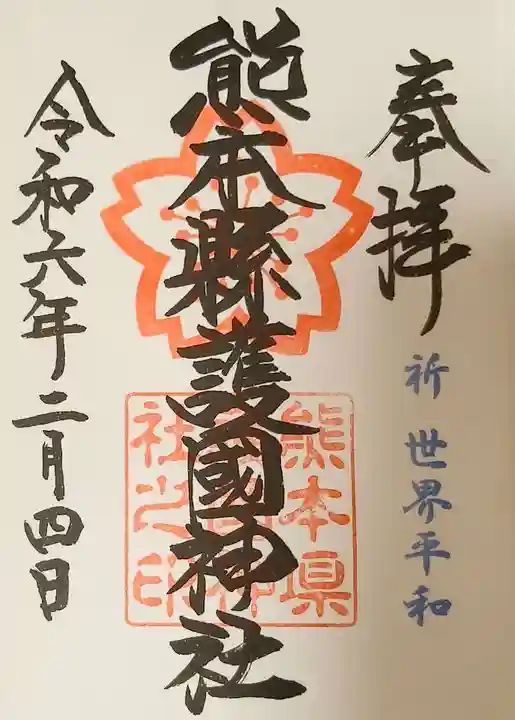 奉拝
祈 世界平和
熊本縣護國神社
熊本県
社之印
令和六年二月四日